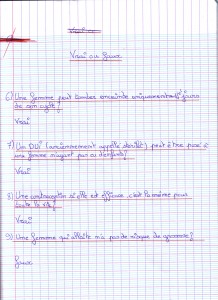 Vrai ou Faux
6) Une femme peut tomber enceinte uniquement les jours
de son cycle?
Vrai
7) Un DIU (anciennement appelé stérilet) peut être posé à
une femme n'ayant pas eu d'enfants?
Vrai
8) Une contraception si elle est efficace, c'est la même pour
toute la vie?
Vrai
9) Une femme qui allaite n'a pas de risque de grossesse?
Faux